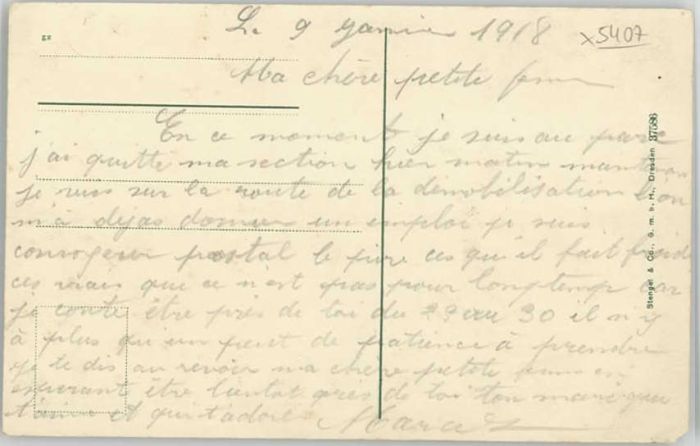 Le 9 janvier 1918
x5407
Ma chère petite femme
En ce moment je suis au parc
j'ai quitté ma section hier matin maintenant
je suis sur la route de la démobilisation l'on
m'a dejas donner un emploi je suis
convoyeur postal le pire ces qu'il fait froid
ces mais que ce n'est pas pour longtemp car
je conte être près de toi du 29 au 30 il n'y
à plus qu'un peut de patience à prendre
je te dis au revoir ma chère petite femme en
esperant être bientot près de toi ton mari que
t'aime et qui t'adore Marcel
Stengel & Co., G. m. b. H., Dresden 37586